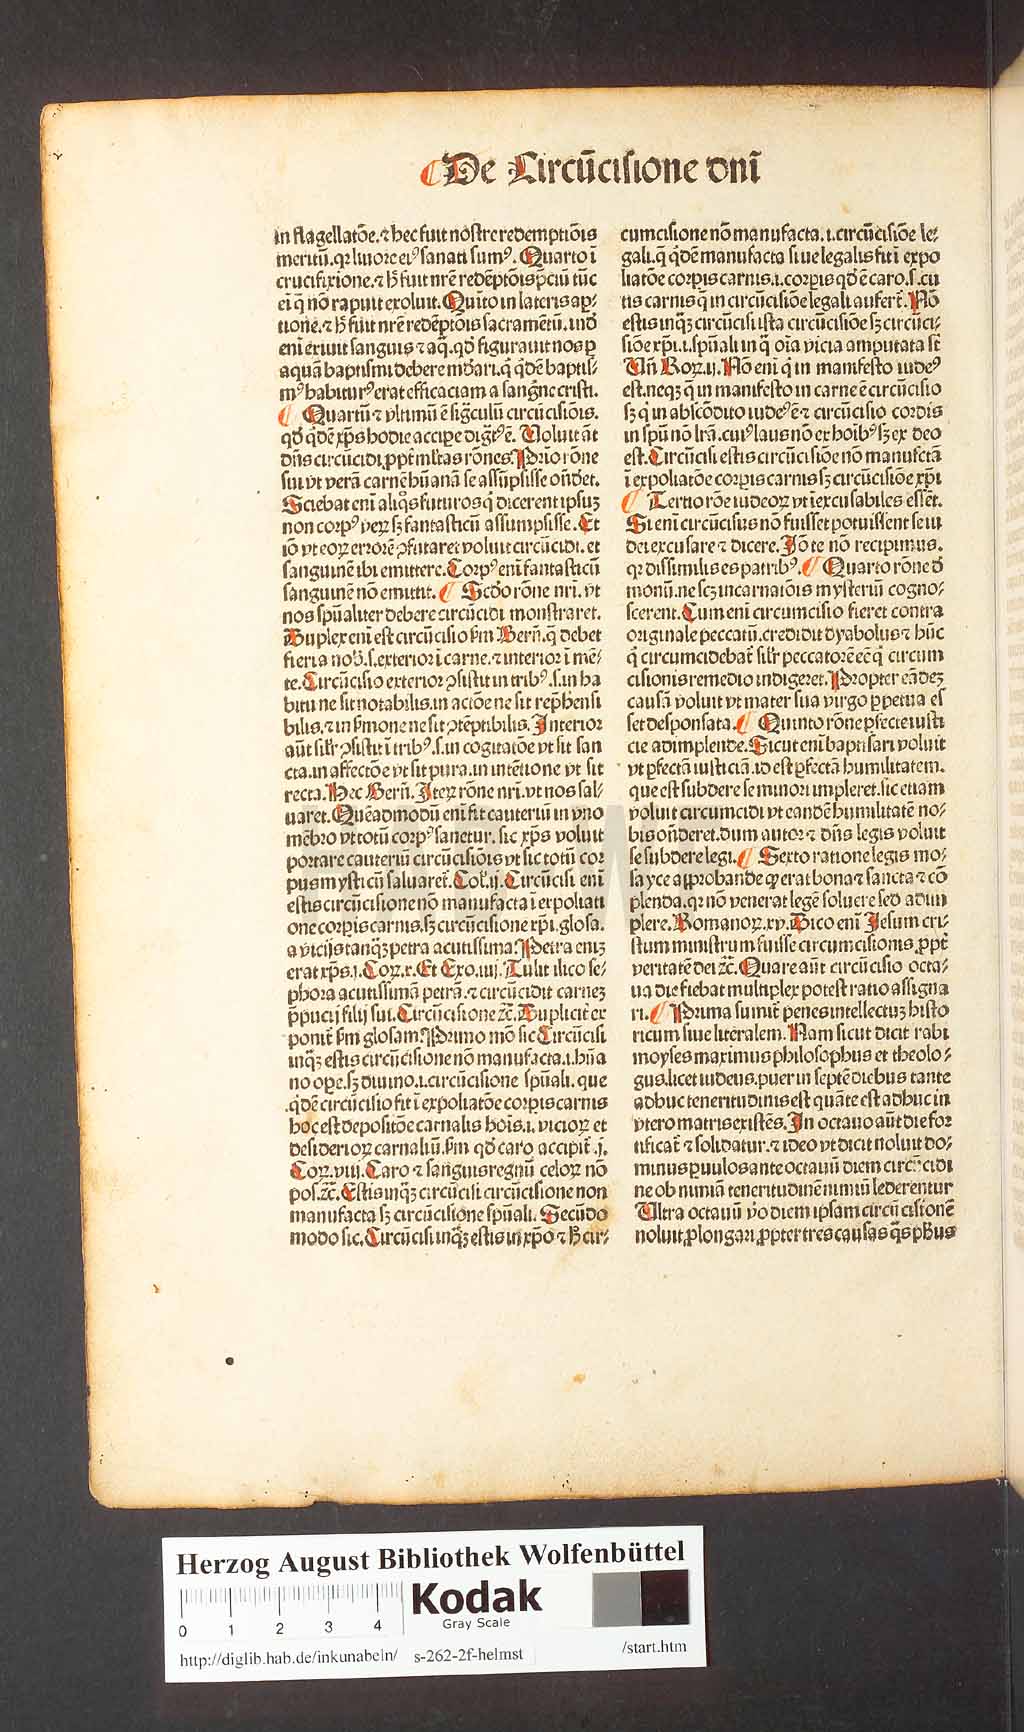 De Circūcisione dn̄i
in flagellatōe. ⁊ hec fuit nostre redemptiōis
meritū. qꝛ liuore eiꝰ sanati sumꝰ. Quarto ī
crucifixione. ⁊ h̄ fuit nr̄e redēptōis p̄ciū tūc
ei q̄ nō rapuit exoluit. Quīto in lateris ap̱-
tione. ⁊ h̄ fuit nr̄e redēptōis sacramētū. īnd̄
enī exiuit sanguis ⁊ aq̄. qd̄ figurauit nos ꝑ
aquam baptismi debere mūdari. q̄ qͥdē baptis-
mꝰ habiturꝰ erat efficaciam a sanguīe cristi.
Quartū ⁊ vltimū ē signaculū circūcisiōis.
qd̄ qͥdē xp̄s hodie accipe dignatꝰ ē. Uoluit āt
dn̄s circūcidi ꝓpt̄ ml̄tas rōnes Primo rōne
sui vt verā carnē hūanā se assūpsisse ondēret.
Sciebat enī aliqͦs futuros qͥ dicerent ipsuꝫ
non corpꝰ veꝝ sꝫ fantasticū assumpsisse. Et
iō vt eoꝝ errorē ꝯfutaret voluit circūcidi. et
sanguinē ibi emittere. Corpꝰ enī fantasticū
sanguinē nō emittit. Scd̄o rōne nr̄i. vt
nos spūaliter debere circūcidi monstraret.
Duplex enī est circūcisio ẜm Bern̄. q̄ debet
fieri a nob̄. s. exterior ī carne. ⁊ interior ī mē-
te. Circūcisio exterior ꝯsistit in tribꝰ. s. in ha
bitu ne sit notabilis. in actōe ne sit rep̄hensi
bilis. ⁊ in ẜmone ne sit ꝯtēptibilis. Interior
aūt silr̄ ꝯsistit ī tribꝰ. s. in cogitatōe vt sit san
cta. in affectōe vt sit pura. in intētione vt sit
recta. Hec Bern̄. Iteꝝ rōne nr̄i. vt nos sal-
uaret. Quēadmodū enī fit cauteriū in vno
mēbro vt totū corpꝰ sanetur. sic xp̄s voluit
portare cauteriū circūcisiōis vt sic totū cor
pus mysticū saluaret̄. Col̄. ij. Circūcisi enī
estis circūcisione nō manufacta ī expoliati
one corpis carnis. sꝫ circūcisione xp̄i. glosa.
a vicijs tanqꝫ petra acutissima. Petra eniꝫ
erat xp̄s. i. Coꝝ. x. Et Exo. iiij. Tulit ilico se-
phora acutissimā petrā. ⁊ circūcidit carneꝫ
p̄pucij filij sui. Circūcisione ⁊c̄. Dupliciter ex
ponit̄ ẜm glosam. Primo mō sic Circūcisi
inqͣꝫ estis circūcisione nō manufacta. i. hūa
no ope. sꝫ diuino. i. circūcisione spūali. que
qͥdē circūcisio fit ī expoliatōe corpis carnis
hoc est depositōe carnalis hoīs. i. vicioꝝ et
desiderioꝝ carnaliū. ẜm qd̄ caro accipit̄. j.
Coꝝ. viij. Caro ⁊ sanguis regnū celoꝝ nō
pos. ⁊c̄. Estis inqͣꝫ circūcisi circūcisione non
manufacta sꝫ circūcisione spūali. Secūdo
modo sic. Circūcisi inqͣꝫ estis in xp̄o ⁊ h̄ cir-
cumcisione nō manufacta. i. circūcisiōe le-
gali. q̄ qͥdē manufacta siue legalis fit ī expo
liatōe corpis carnis. i. corpis qd̄ ē caro. s. cu
tis carnis q̄ in circūcisiōe legali aufert̄. Nō
estis inqͣꝫ circūcisi ista circūcisiōe sꝫ circūci-
siōe xp̄i. i. spūali in q̄ oīa vicia amputata st̄
Un̄ Roꝝ. ij. Nō enī qͥ in manifesto iudeꝰ
est. neqꝫ q̄ in manifesto in carne ē circūcisio
sꝫ qͥ in abscōdito iudeꝰ ē ⁊ circūcisio cordis
in spū nō lr̄a. cuiꝰ laus nō ex hoībꝰ sꝫ ex deo
est. Circūcisi estis circūcisiōe nō manufctā
ī expoliatōe corpis carnis sꝫ circūcisiōe xp̄i
Tertio rōe iudeoꝝ vt īexcusabiles essēt.
Si enī circūcisus nō fuisset potuissent se iu
dei excusare ⁊ dicere. Iō te nō recipimus.
qꝛ dissimilis es patribꝰ. Quarto rōne de
monū. ne scꝫ incarnatiōis mysteriū cogno-
scerent. Cum enī circumcisio fieret contra
originale peccatū. credidit dyabolus ⁊ hūc
qͥ circumcidebat̄ silr̄ peccatorē eē qͥ circum
cisionis remedio indigeret. Propter eādeꝫ
causā voluit vt mater sua virgo ꝑpetua es
set desponsata. Quinto rōne ꝑfecte iusti
cie adimplende. Sicut enī baptisari voluit
vt ꝑfectā iusticiā. id est ꝑfectā humilitatem.
que est subdere se minori impleret. sic etiam
voluit circumcidi vt eandē humilitatē no-
bis onderet. dum autor ⁊ dn̄s legis voluit
se subdere legi. Sexto ratione legis mo-
sayce approbande q̄ erat bona ⁊ sancta ⁊ cō
plenda. qꝛ nō venerat legē soluere sed adim
plere. Romanoꝝ. xv. Dico enī Iesum cri-
stum ministrum fuisse circumcisionis ꝓpt̄
veritatē dei ⁊c̄. Quare aūt circūcisio octa-
ua die fiebat multiplex potest ratio assigna
ri. Prima sumit̄ penes intellectuꝫ histo
ricum siue literalem. Nam sicut dicit rabi
moyses maximus philosophus et theolo-
gus. licet iudeus. puer in septē diebus tante
adhuc teneritudinis est quāte est adhuc in
vtero matris existēs. In octauo aūt die for
tificat̄ ⁊ solidatur. ⁊ ideo vt dicit noluit do-
minus puulos ante octauū diem circūcidi
ne ob nimiā teneritudinē nimiū lederentur
Ultra octauū v̄o diem ipsam circūcisionē
noluit ꝓlongari ꝓpter tres causas qͣs ph̄us
Herzog August Bibliothek Wolfenbüttel
0 1 2 3 4
Kodak
Gray Scale
http://diglib.hab.de/inkunabeln/ s-262-2f-helmst /start.htm